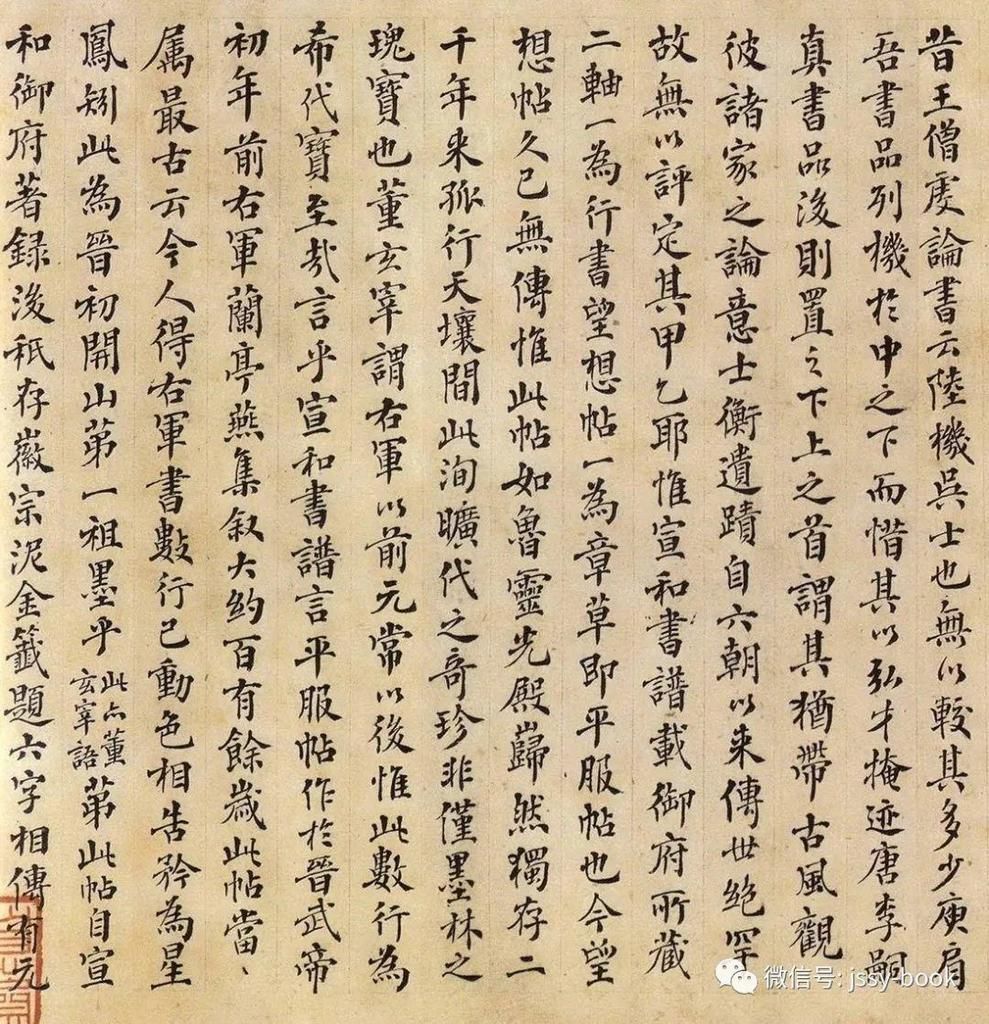 昔王僧虔論書云陸機吳士也無以較其多少庾肩
吾書品列機於中之下而惜其以弘才掩迹唐李嗣
真書品後則置之下上之首謂其猶帶古風觀
彼諸家之論意士衡遺蹟自六朝以來傳世絕罕
故無以評定其甲乙耶惟宣和書譜載御府所藏
二軸一為行書望想帖一為章草即平服帖也今望
想帖久已無傳惟此帖如魯靈光殿巋然獨存二
千年來孤行天壤間此洵曠代之奇珍非僅墨林之
瑰寶也董玄宰謂右軍以前元常以後惟此數行為
希代寶至哉言乎宣和書譜言平服帖作於晉武帝
初年前右軍蘭亭燕集敘大約百有餘歲此帖當、
属最古云今人得右軍書數行已動色相告矜為星
鳳矧此為晉初開山第一祖墨乎此亦董玄宰語第此帖自宣
和御府著録後秖存徽宗泥金籤題六字相傳有元
微信号: jssy-book